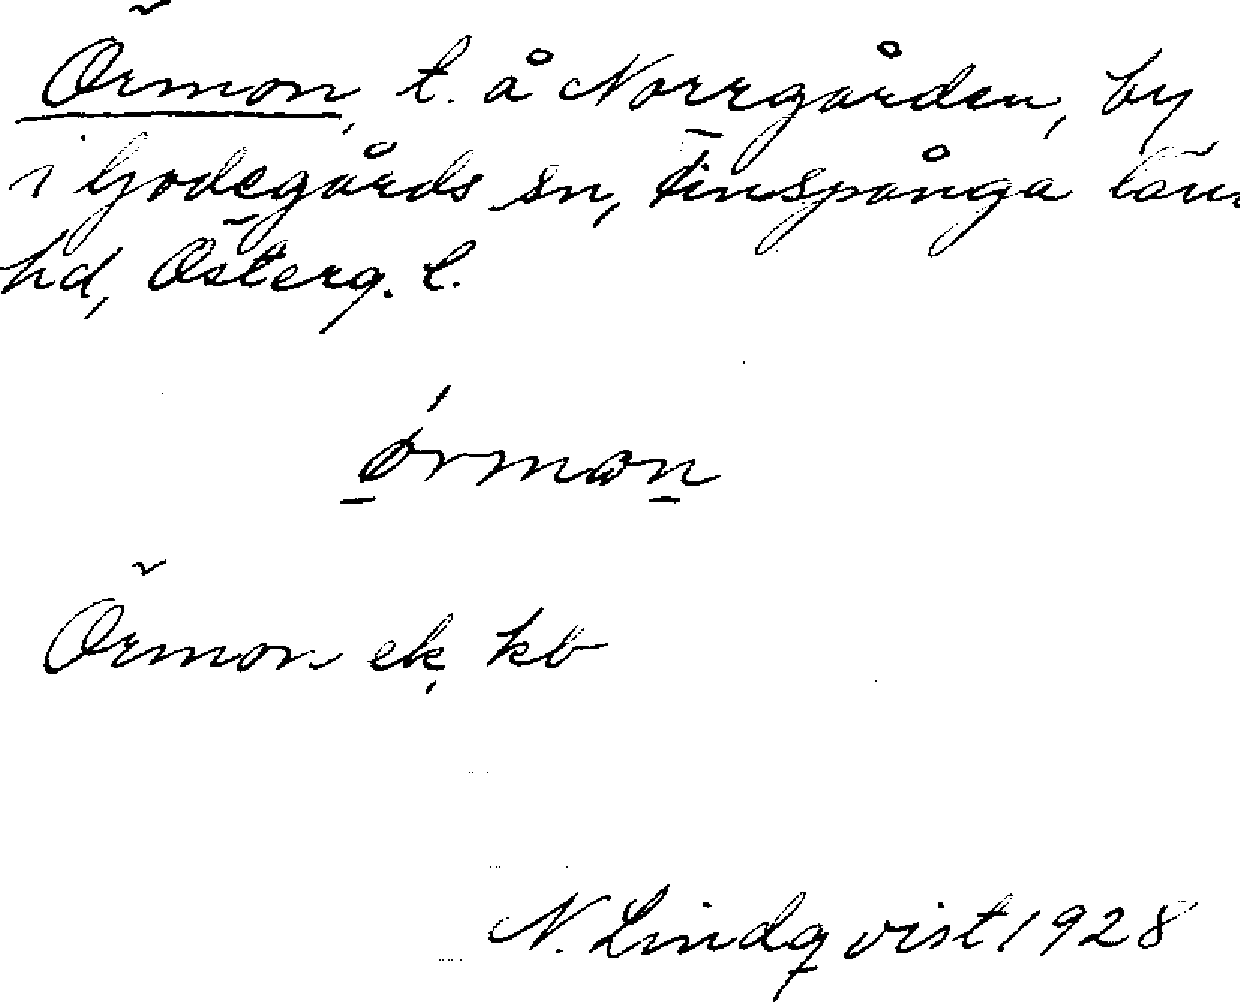 Örmon, t. å Norrgården, by
i Godegårds sn, Finspånga läns
hd, Österg. l.
ørmøn
Örmon ek. kb
N. Lindqvist 1928